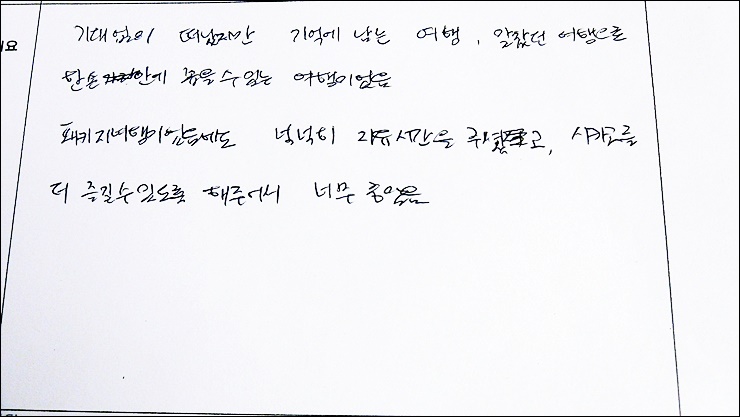 기대없이 떠났지만 기억에 남는 여행, 알찼던 여행으로
한손안에 꼽을수있는 여행이었음
패키지여행이었음에도 넉넉히 자유시간을 주셨고,
더 즐길수있도록 해주어서 너무 좋았음